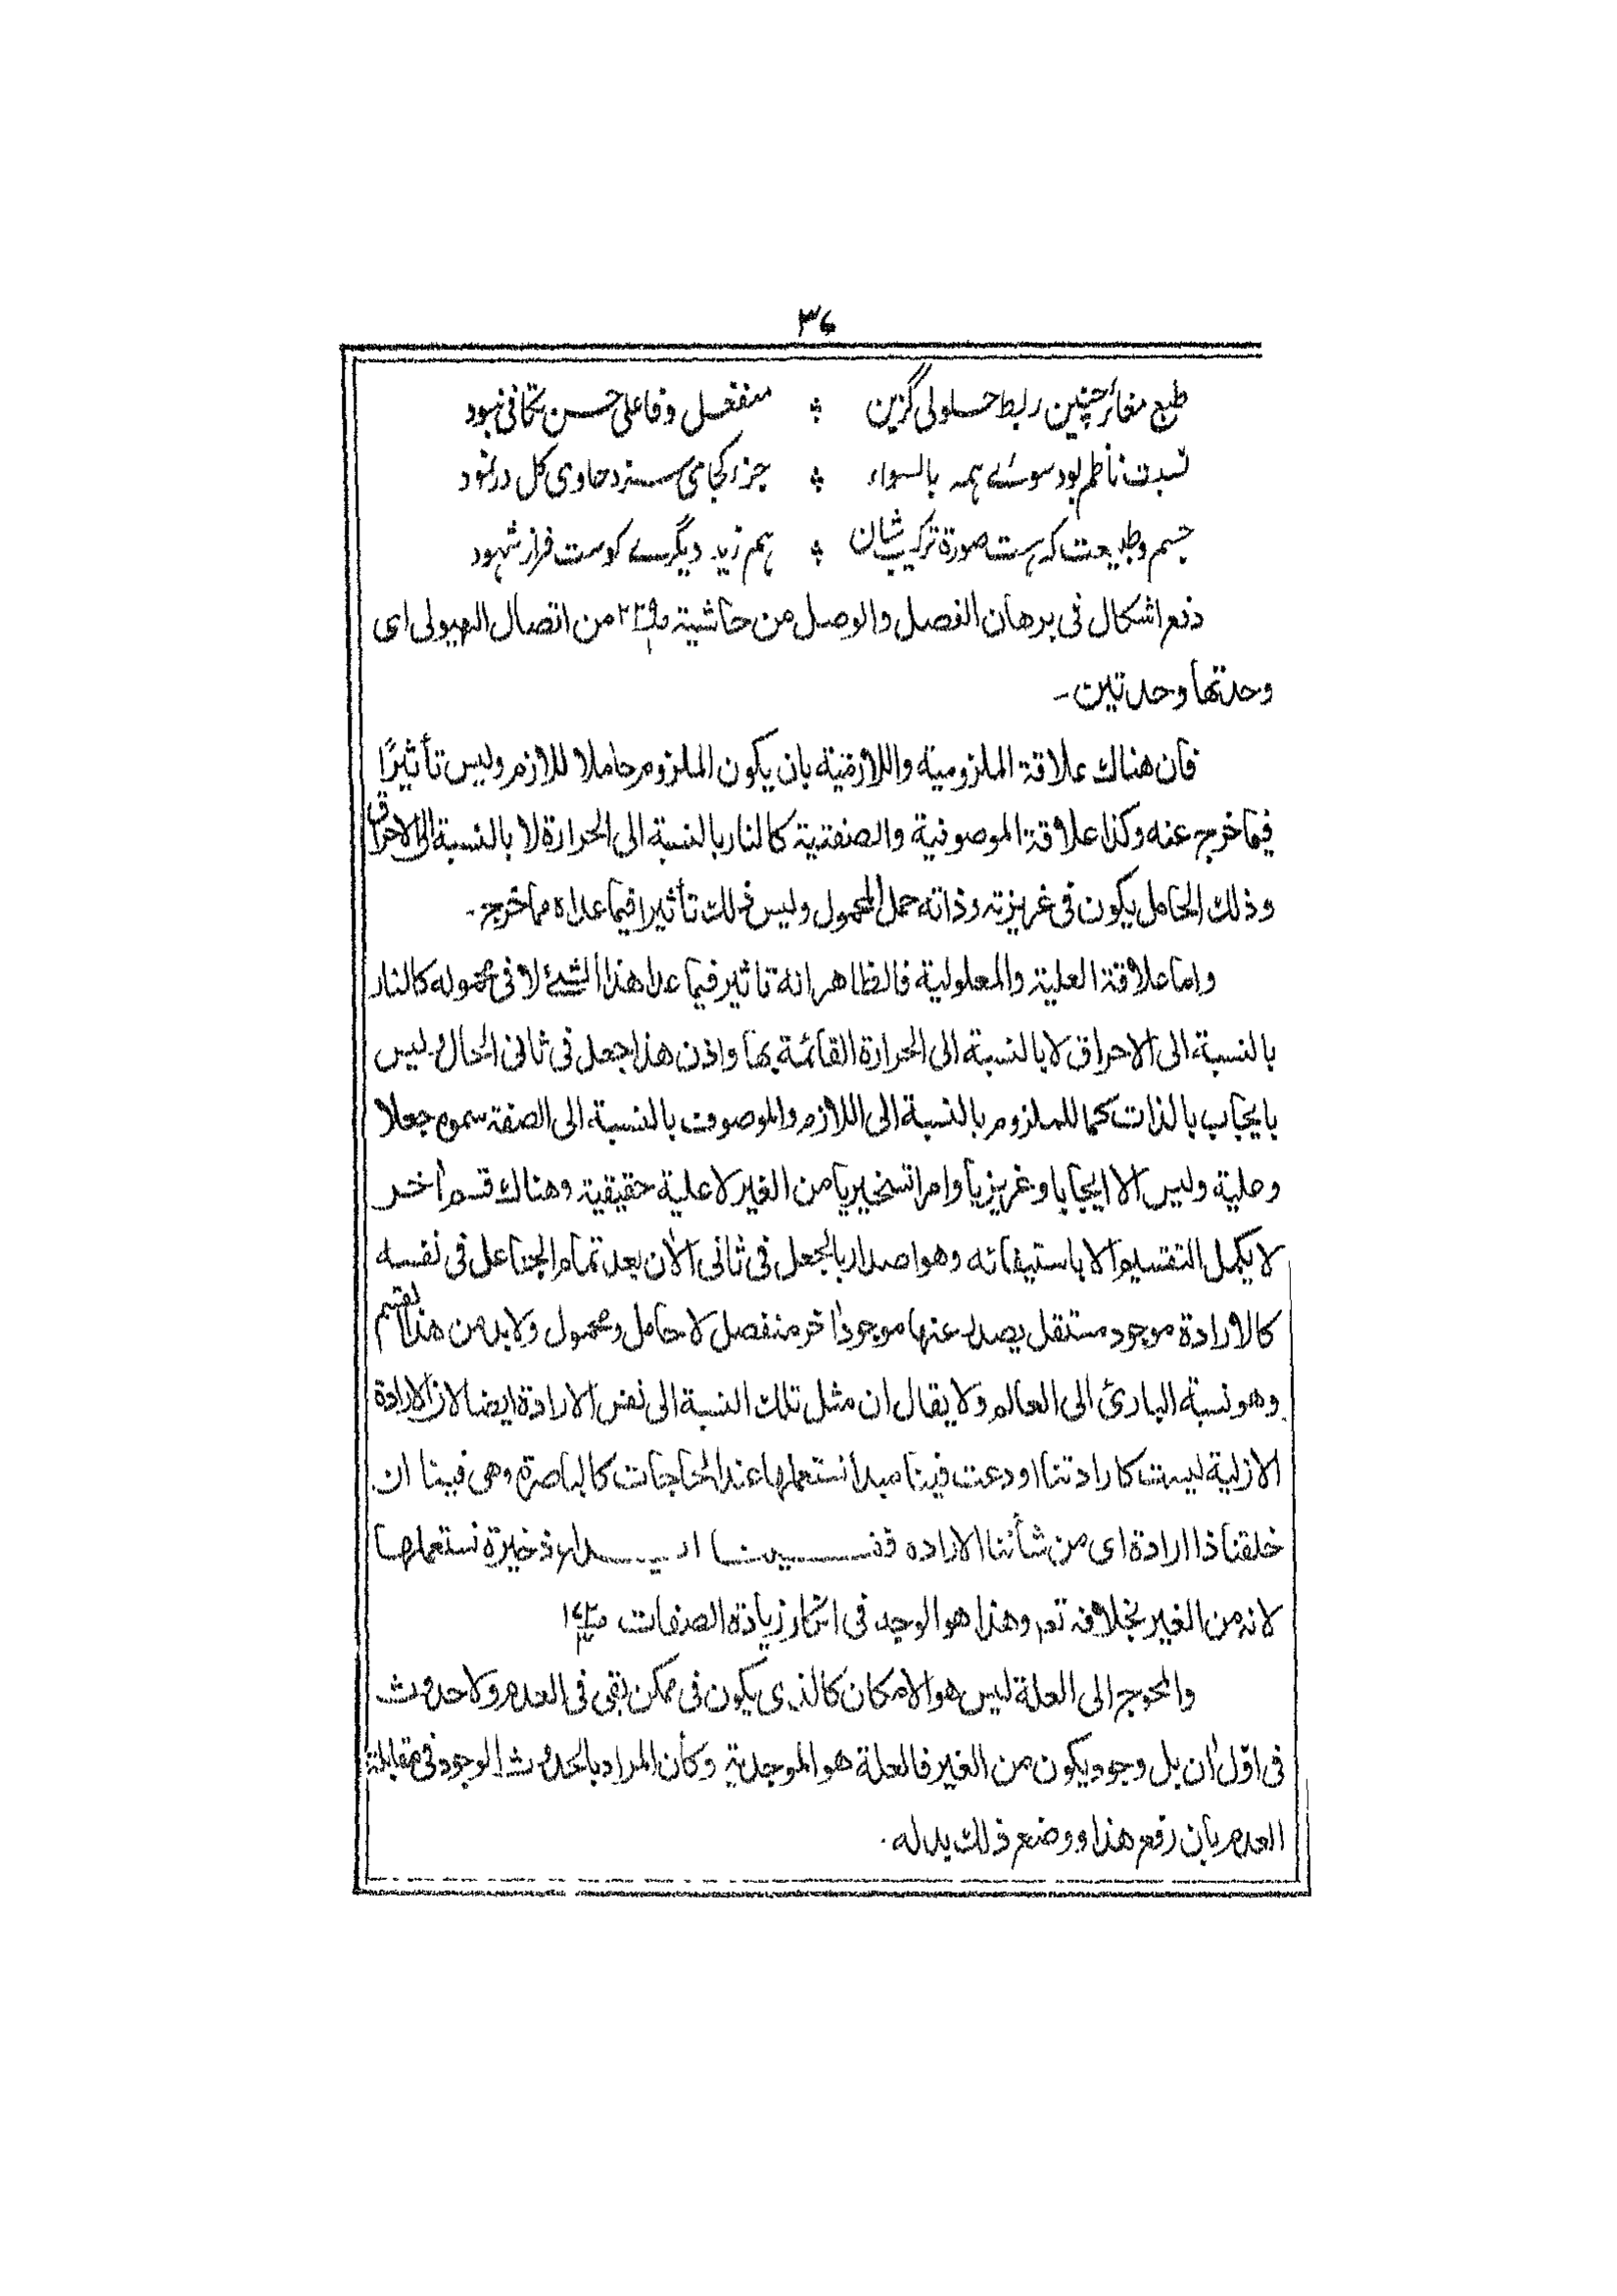 ٣٤
طبع مغائر چنین ربط حلولی گزین ؞ منفعل وفاعلی حسن تلافی نبود
نسبت ناظم بود سوئے ہمہ بالسواء ؞ جزء کجا می سزد حاوی کل در نمود
جسم وطبیعت کہ ہست صورۃ ترکیب شان ؞ ہم زید دیگرے کوست فراز شہود
دفع اشکال فی برهان الفصل والوصل من حاشیۃ من اتصال الهیولی ای
وحدتها وحدتین۔
فان هناك علاقۃ الملزومیۃ واللازمیۃ بان یكون الملزوم حاملا للازم ولیس تأثیرًا
فیما خرج عنه وكذا علاقۃ الموصوفیۃ والصفتیۃ كالنار بالنسبۃ الی الحرارۃ لا بالنسبۃ الی الاحراق
وذلك الحامل یكون فی غریزتہ وذاته حمل المحمول ولیس ذلك تأثیرا فیما عداہ مما خرج۔
واما علاقۃ العلیۃ والمعلولیۃ فالظاهر انه تاثیر فیما عدا هذا الشیئ لا فی محموله كالنار
بالنسبۃ الی الاحراق لا بالنسبۃ الی الحرارۃ القائمۃ بها واذن هذا جعل فی ثانی الحال ولیس
بایجاب بالذات كما للملزوم بالنسبۃ الی اللازم والموصوف بالنسبۃ الی الصفۃ سموہ جعلا
وعلیۃ ولیس الا ایجابا وغریزیا وامرا تسخیریا من الغیر لا علیۃ حقیقیۃ وهناك قسم اٰخر
لا یكمل التقسیم الا باستیفائه وهو اصدار بالجعل فی ثانی الاٰن بعد تمام الجاعل فی نفسه
كالارادۃ موجود مستقل یصدر عنها موجود اٰخر منفصل لا حامل ومحمول ولا بد من هذا القسم
وهو نسبۃ البارئ الی العالم ولا یقال ان مثل تلك النسبۃ الی نفس الارادۃ ایضا لان الارادۃ
الازلیۃ لیست كارادتنا اودعت فینا مبدأ نستعملها عند الحاجات كالباصرۃ وهی فینا ان
خلقنا ذا ارادۃ ای من شأننا الارادہ ففینا ذخیرۃ نستعملها
لانہ من الغیر بخلافه تعم وهذا هو الوجہ فی انكار زیادۃ الصفات
والمحوج الی العلۃ لیس هو الامكان كالذی یكون فی ممكن بقی فی العدم ولا حدوث
فی اوّل اٰن بل وجود یكون من الغیر فالعلۃ هو الموجدیۃ وكأن المراد بالحدوث الوجود فی مقابلۃ
العدم بان رفع هذا ووضع ذلك بدله۔